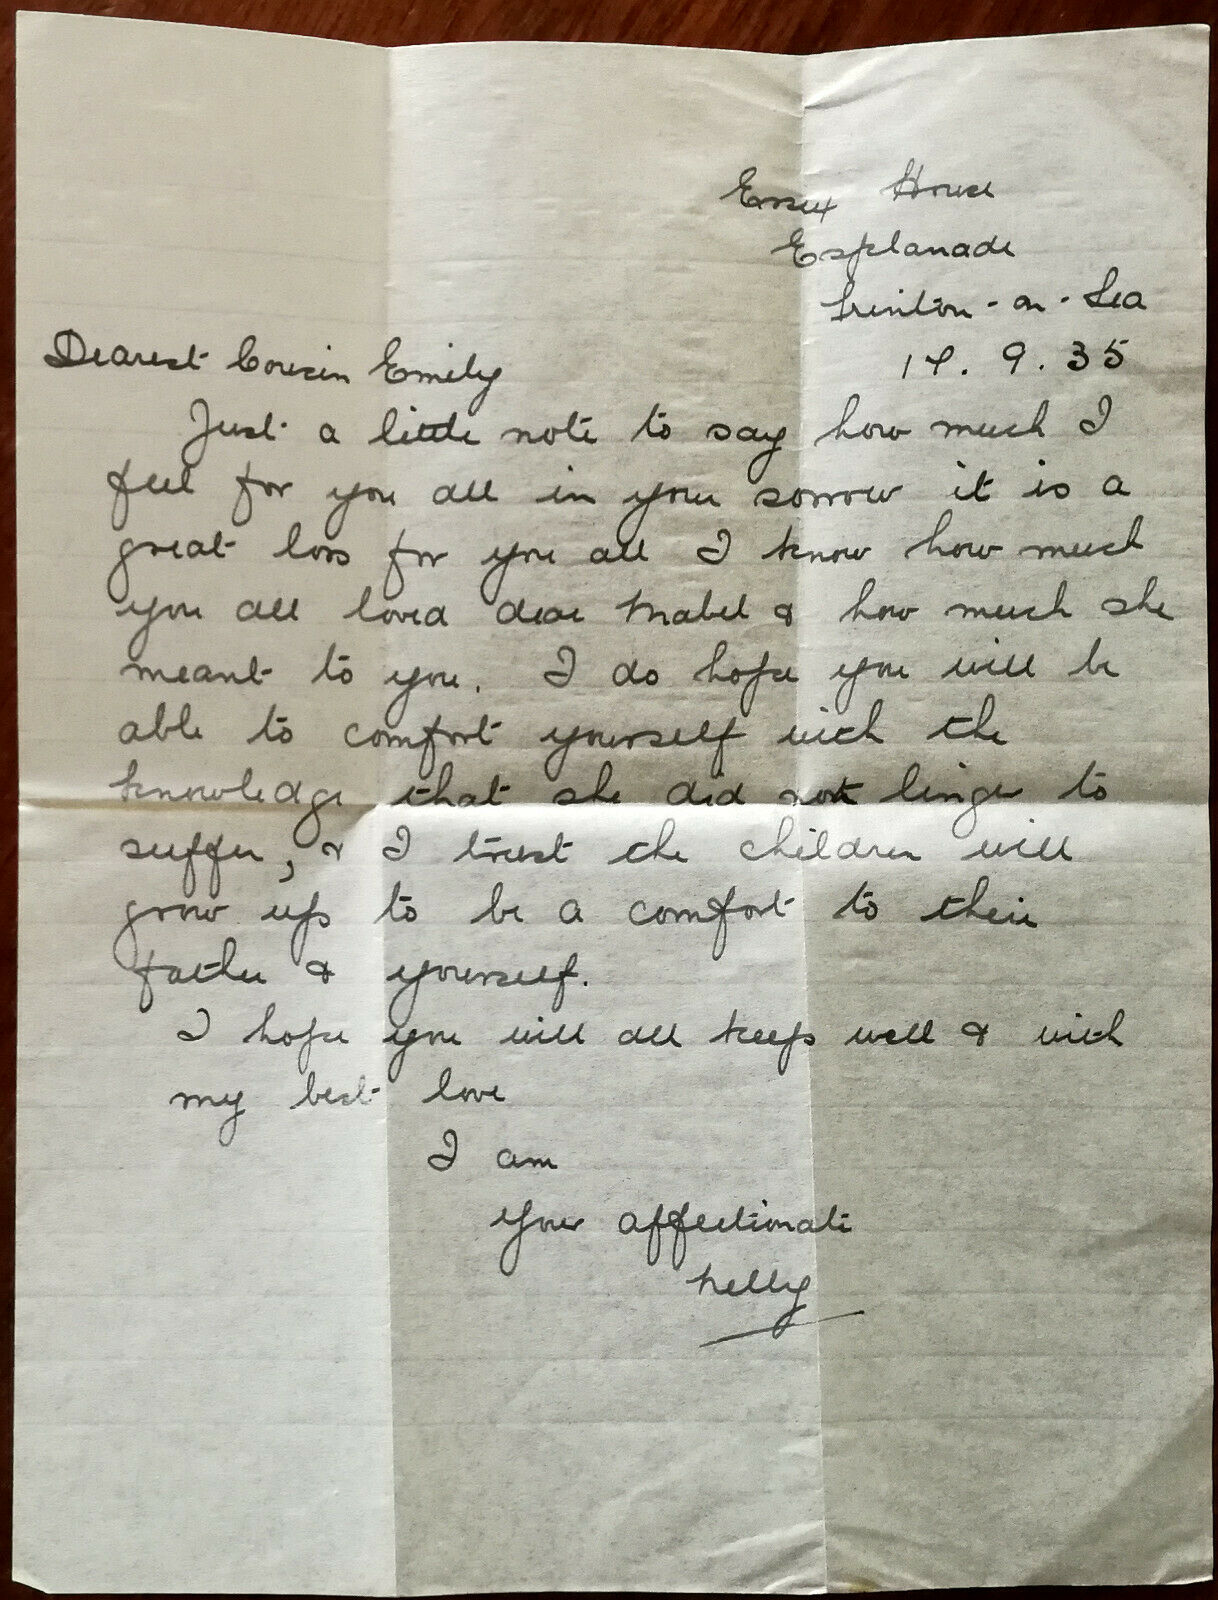 Essex House
Esplanade
Frinton-on-Sea
17.9.35
Dearest Cousin Emily
Just a little note to say how much I
feel for you all in your sorrow it is a
great loss for you all I know how much
you all loved dear Mabel & how much she
meant to you. I do hope you will be
able to comfort yourself with the
knowledge that she did not linger to
suffer, & I trust the children will
grow up to be a comfort to their
father & yourself.
I hope you will all keep well & with
my best love
I am
your affectionate
Nelly